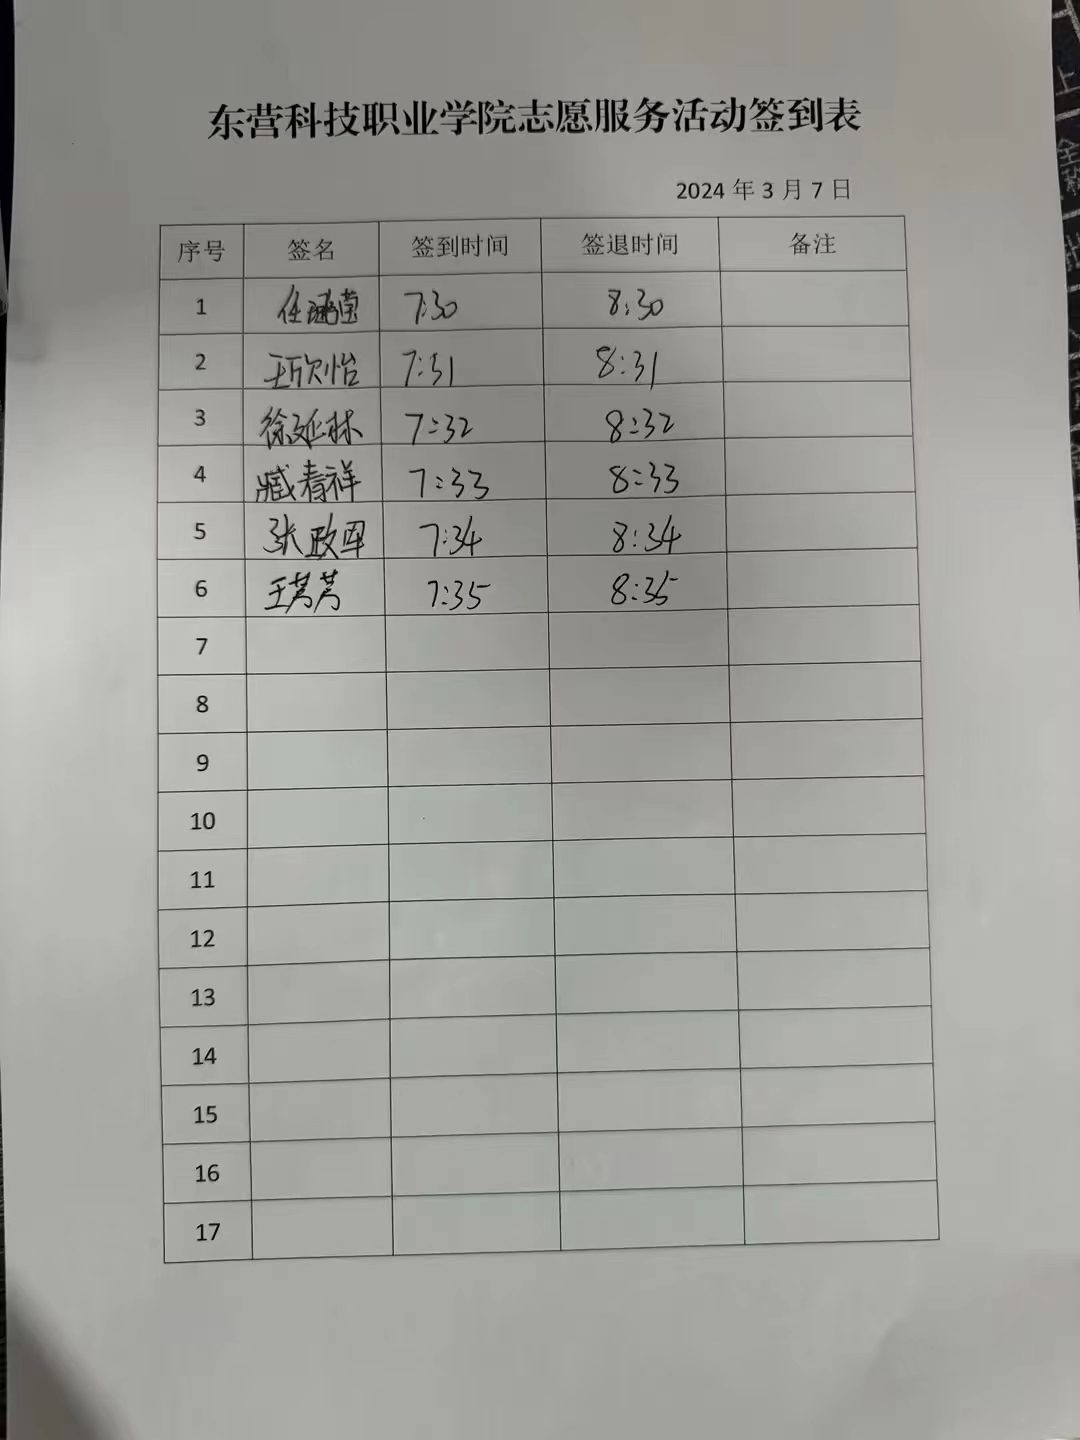 东营科技职业学院志愿服务活动签到表
2024 年 3 月 7 日
序号 签名 签到时间 签退时间 备注
1 任 莹 7:30 8:30
2 王欣怡 7:31 8:31
3 徐延林 7:32 8:32
4 臧春祥 7:33 8:33
5 张政军 7:34 8:34
6 王芳芳 7:35 8:35
7
8
9
10
11
12
13
14
15
16
17
上
全